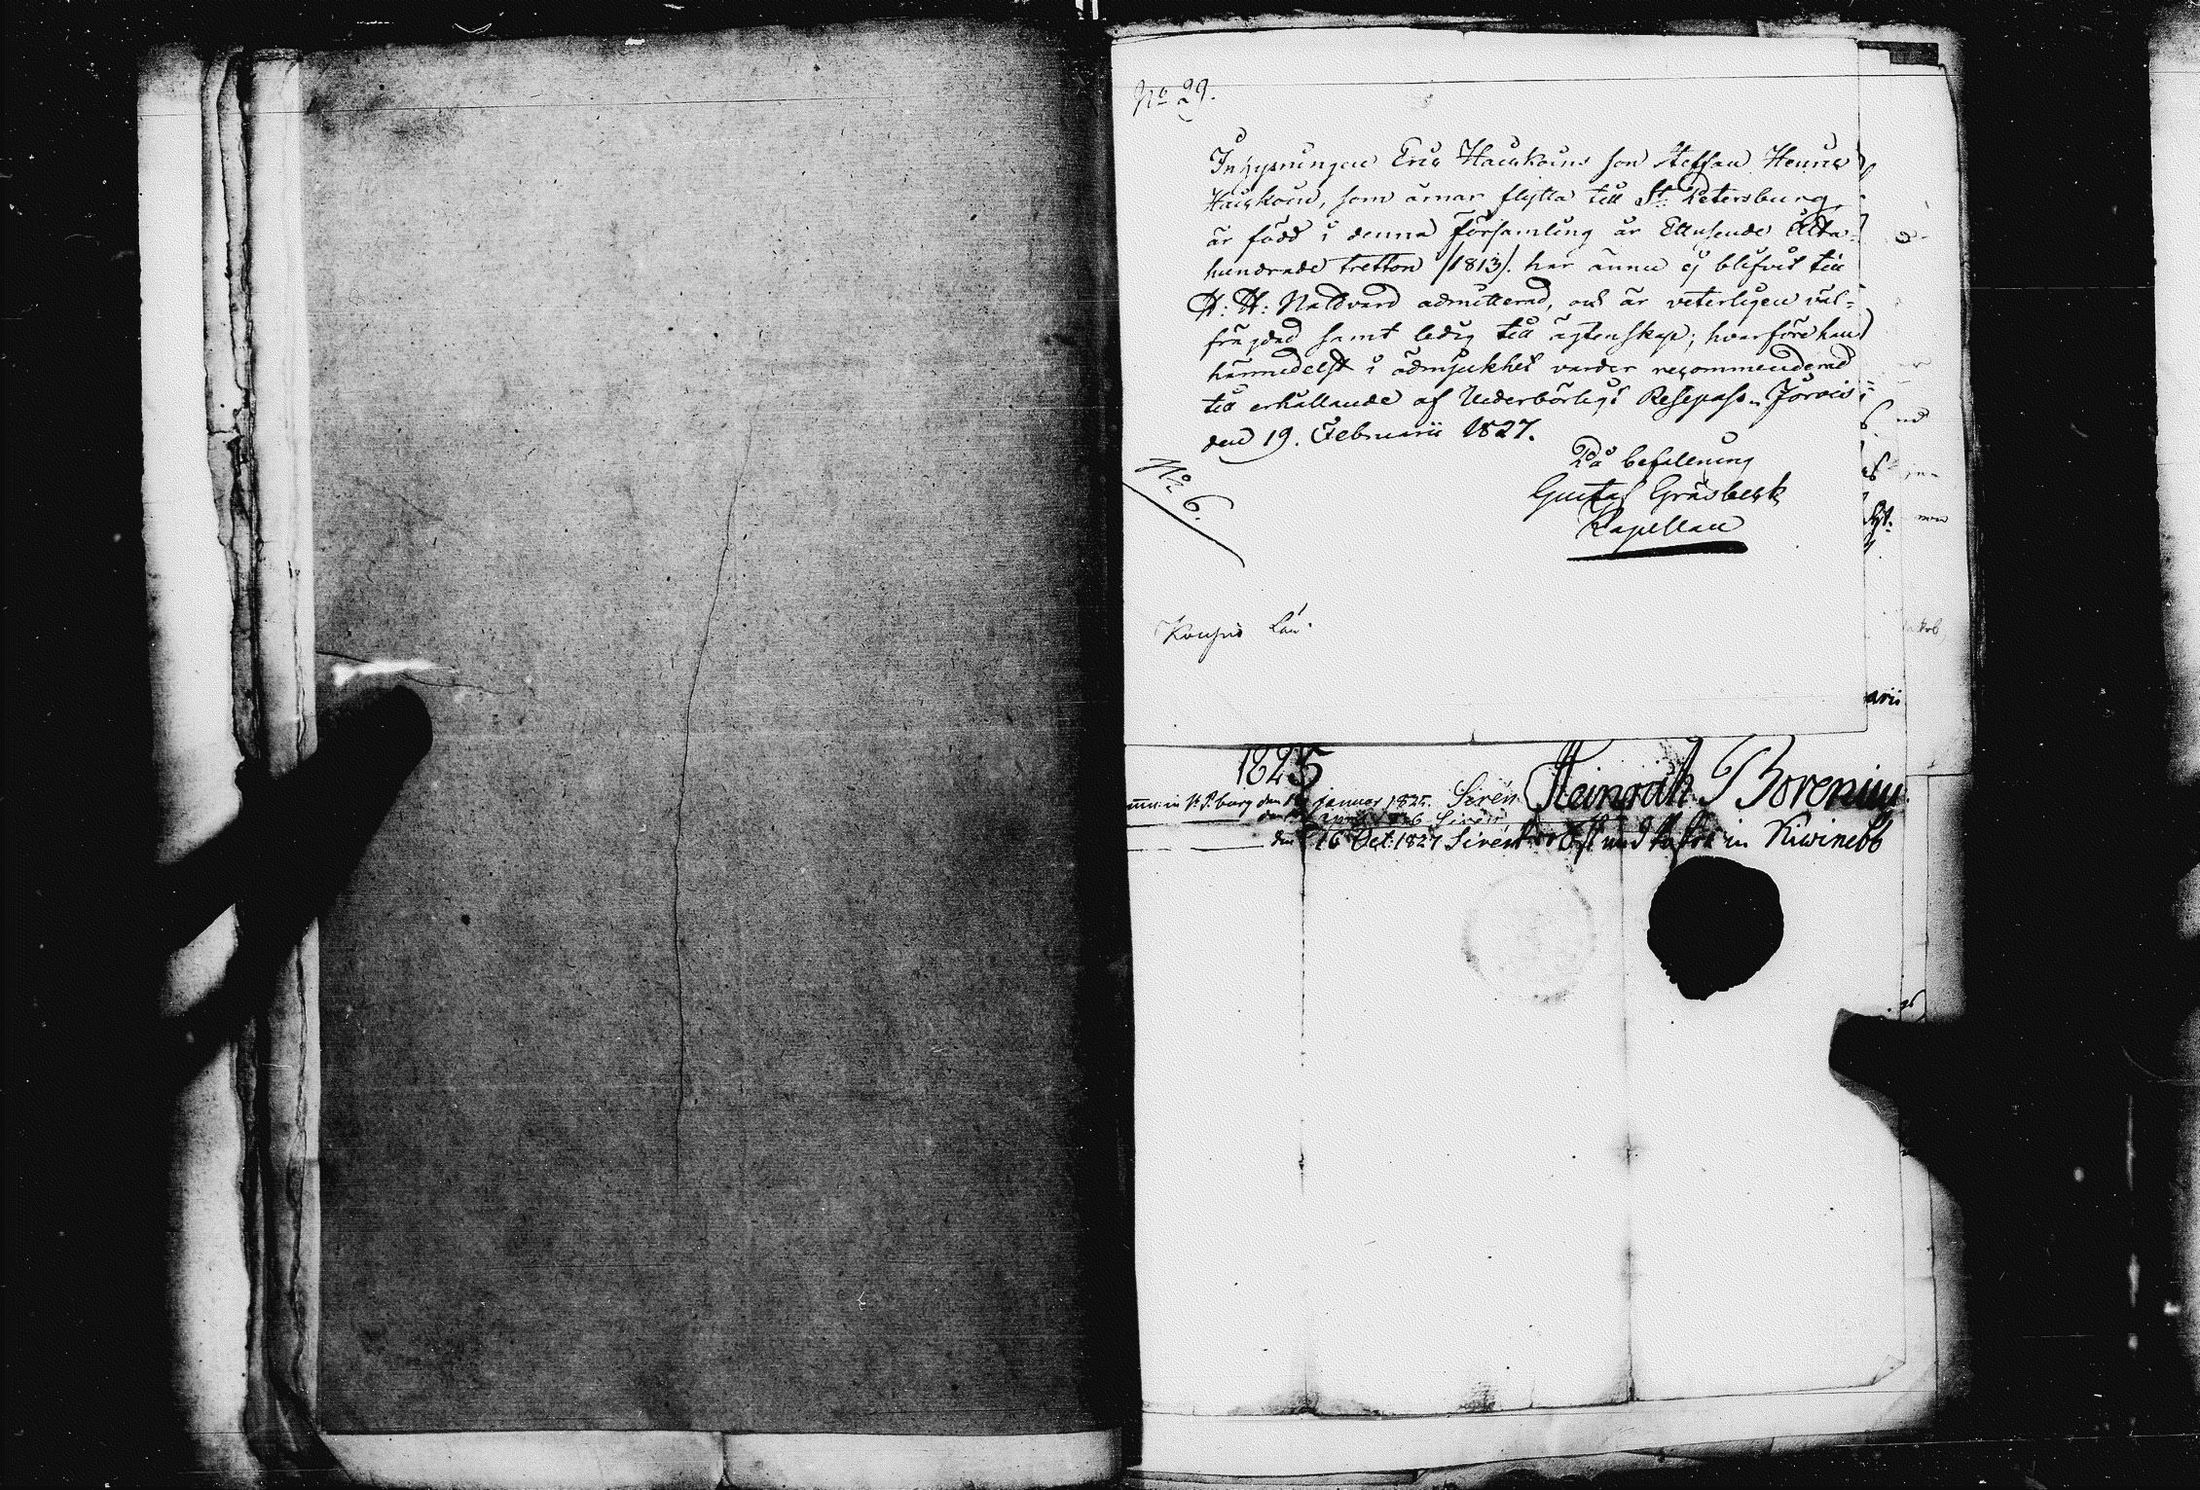 No 29.
Inhysningen Eric Hauskoins son Steffan Henric
Hauskoin, som ärnar flytta till St. Petersburg,
är född i denna Församling år Ettusende Åtta-
hundrade tretton /1813/. har ännu ej blifvit till
H: H: Nattvard admitterad, och är veterligen väl-
frägdad samt ledig till ägtenskap; hvarföre han
härmedelst i ödmjukhet varder recommenderad
till erhållande af Vederbörligt Resepass. Jorois
den 19. Februarii 1827.
På befallning
Gustaf Gråsbeck
Kapellan
No 6.
Län
arii
1825
in St. P.burg den januar 1825. Sirén Heinrich Borenius
Sirén
den 16 Oct: 1827 Sirén Probst und Pastor in Kiwinebb